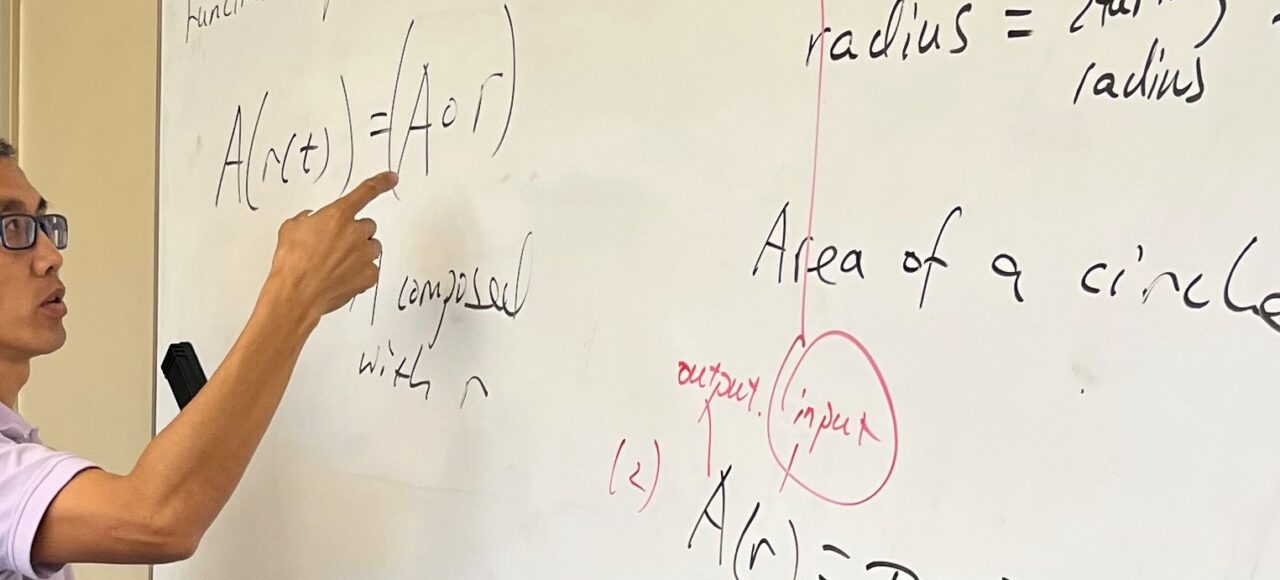 A(r(t)) = (A∘r)
A composed
with r
radius =
radius
Area of a circle
output
input
(2)
A(r) =